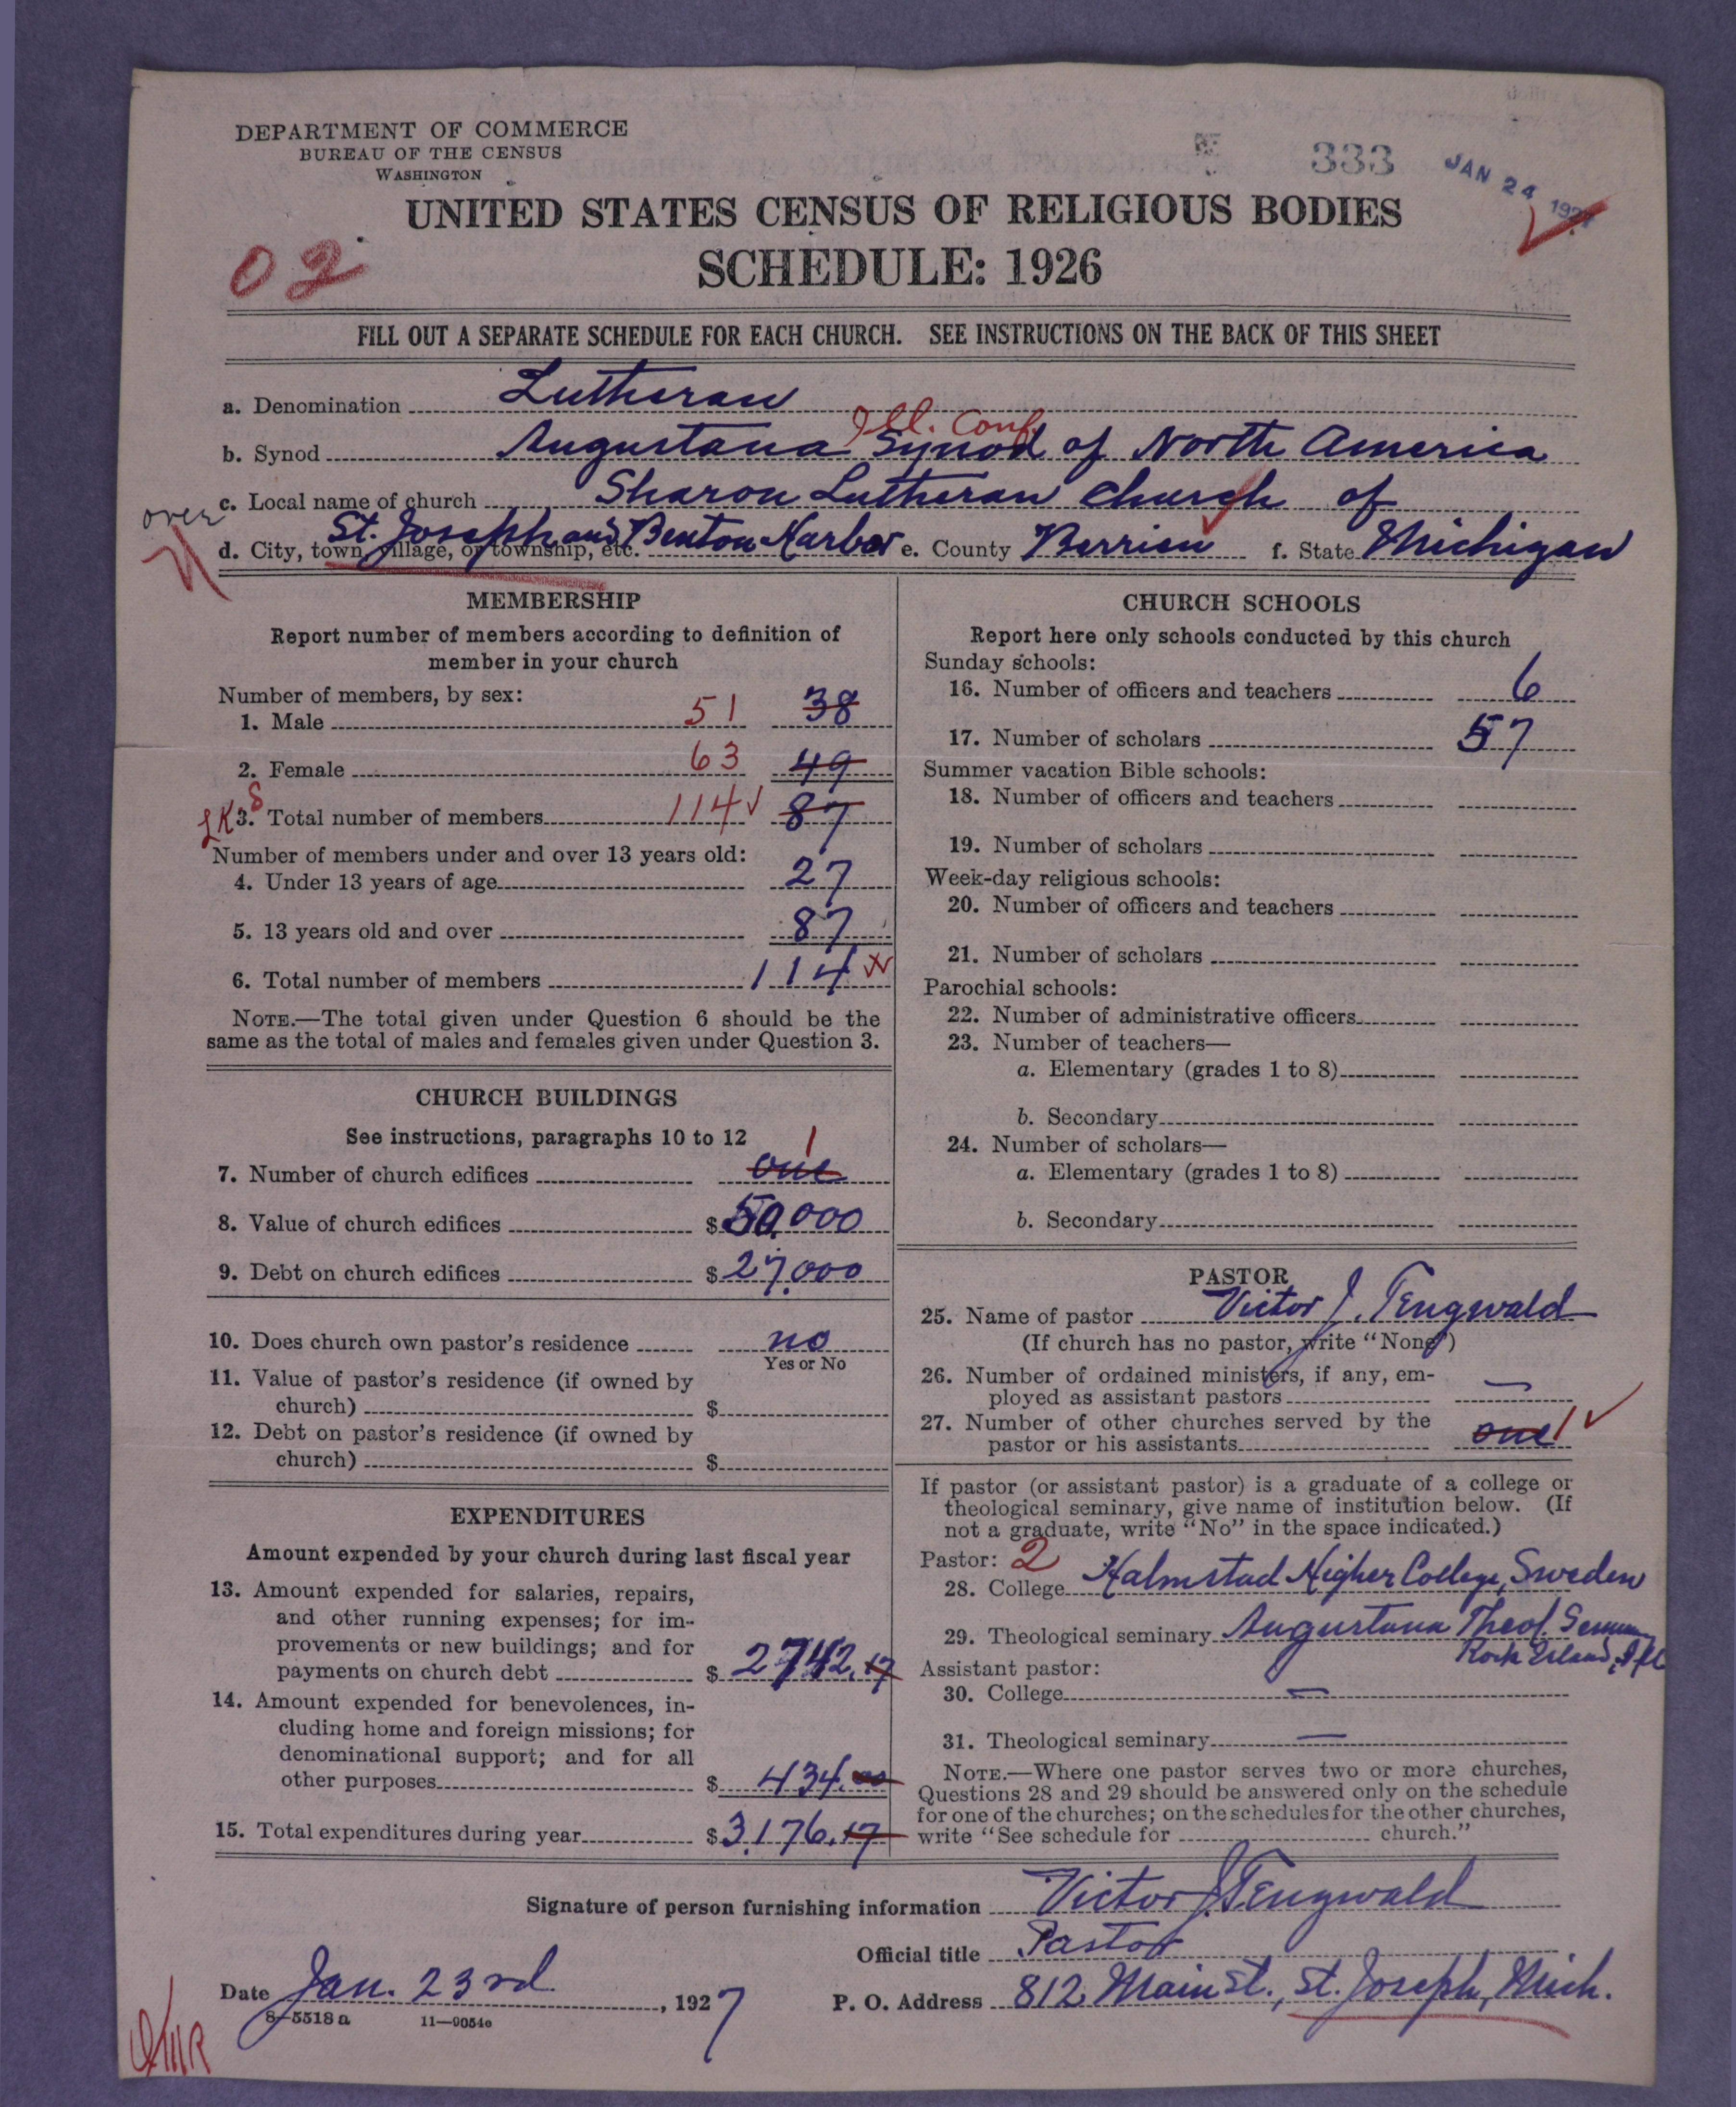 DEPARTMENT OF COMMERCE
BUREAU OF THE CENSUS
WASHINGTON
333
JAN 24 1927
UNITED STATES CENSUS OF RELIGIOUS BODIES
02
SCHEDULE: 1926
FILL OUT A SEPARATE SCHEDULE FOR EACH CHURCH. SEE INSTRUCTIONS ON THE BACK OF THIS SHEET
a. Denomination Lutheran
Ill. Conf.
b. Synod Augustana Synod of North America
c. Local name of church Sharon Lutheran Church of
over
d. City, town, village, or township, etc. St. Joseph and Benton Harbor e. County Berrien f. State Michigan
MEMBERSHIP
Report number of members according to definition of
member in your church
Number of members, by sex:
1. Male 51 38
2. Female 63 49
3. Total number of members 114 87
Number of members under and over 13 years old:
4. Under 13 years of age 27
5. 13 years old and over 87
6. Total number of members 114
NOTE.—The total given under Question 6 should be the
same as the total of males and females given under Question 3.
CHURCH BUILDINGS
See instructions, paragraphs 10 to 12
7. Number of church edifices one 1
8. Value of church edifices $50,000
9. Debt on church edifices $27,000
10. Does church own pastor's residence no
Yes or No
11. Value of pastor's residence (if owned by
church) $
12. Debt on pastor's residence (if owned by
church) $
EXPENDITURES
Amount expended by your church during last fiscal year
13. Amount expended for salaries, repairs,
and other running expenses; for im-
provements or new buildings; and for
payments on church debt $2742.17
14. Amount expended for benevolences, in-
cluding home and foreign missions; for
denominational support; and for all
other purposes $434.00
15. Total expenditures during year $3,176.17
CHURCH SCHOOLS
Report here only schools conducted by this church
Sunday schools:
16. Number of officers and teachers 6
17. Number of scholars 57
Summer vacation Bible schools:
18. Number of officers and teachers
19. Number of scholars
Week-day religious schools:
20. Number of officers and teachers
21. Number of scholars
Parochial schools:
22. Number of administrative officers
23. Number of teachers—
a. Elementary (grades 1 to 8)
b. Secondary
24. Number of scholars—
a. Elementary (grades 1 to 8)
b. Secondary
PASTOR
25. Name of pastor Victor J. Tengwald
(If church has no pastor, write "None")
26. Number of ordained ministers, if any, em-
ployed as assistant pastors —
27. Number of other churches served by the
pastor or his assistants one 1
If pastor (or assistant pastor) is a graduate of a college or
theological seminary, give name of institution below. (If
not a graduate, write "No" in the space indicated.)
Pastor: 2
28. College Halmstad Higher College, Sweden
29. Theological seminary Augustana Theol. Semin
Rock Island, Ill
Assistant pastor:
30. College —
31. Theological seminary —
NOTE.—Where one pastor serves two or more churches,
Questions 28 and 29 should be answered only on the schedule
for one of the churches; on the schedules for the other churches,
write "See schedule for church."
Signature of person furnishing information Victor J. Tengwald
Official title Pastor
Date Jan. 23rd, 1927
P. O. Address 812 Main St., St. Joseph, Mich.
8—5518 a 11—9054c